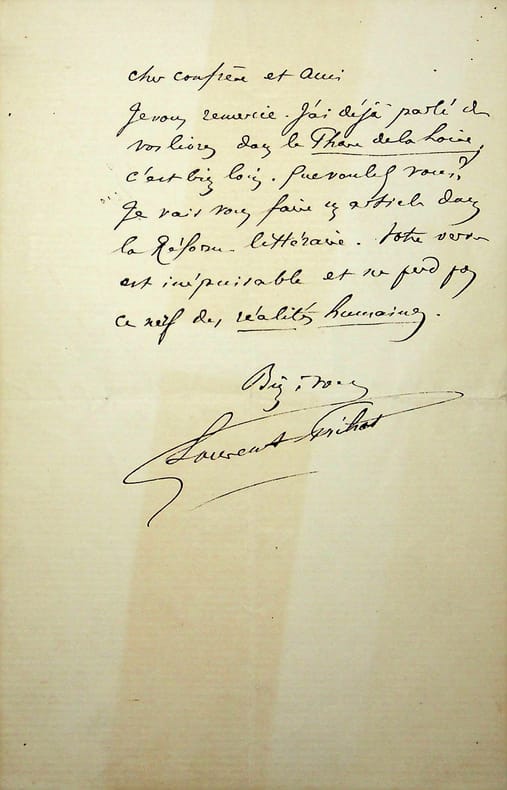 cher confrère et ami
Je vous remercie. J'ai déjà parlé de
vos livres dans le Phare de la Loire,
c'est bien loin. Que voulez vous?
Je vais vous faire un article dans
la Réforme littéraire. Votre verve
est inépuisable et ne perd pas
ce nerf des réalités humaines.
Bien à vous
Laurent